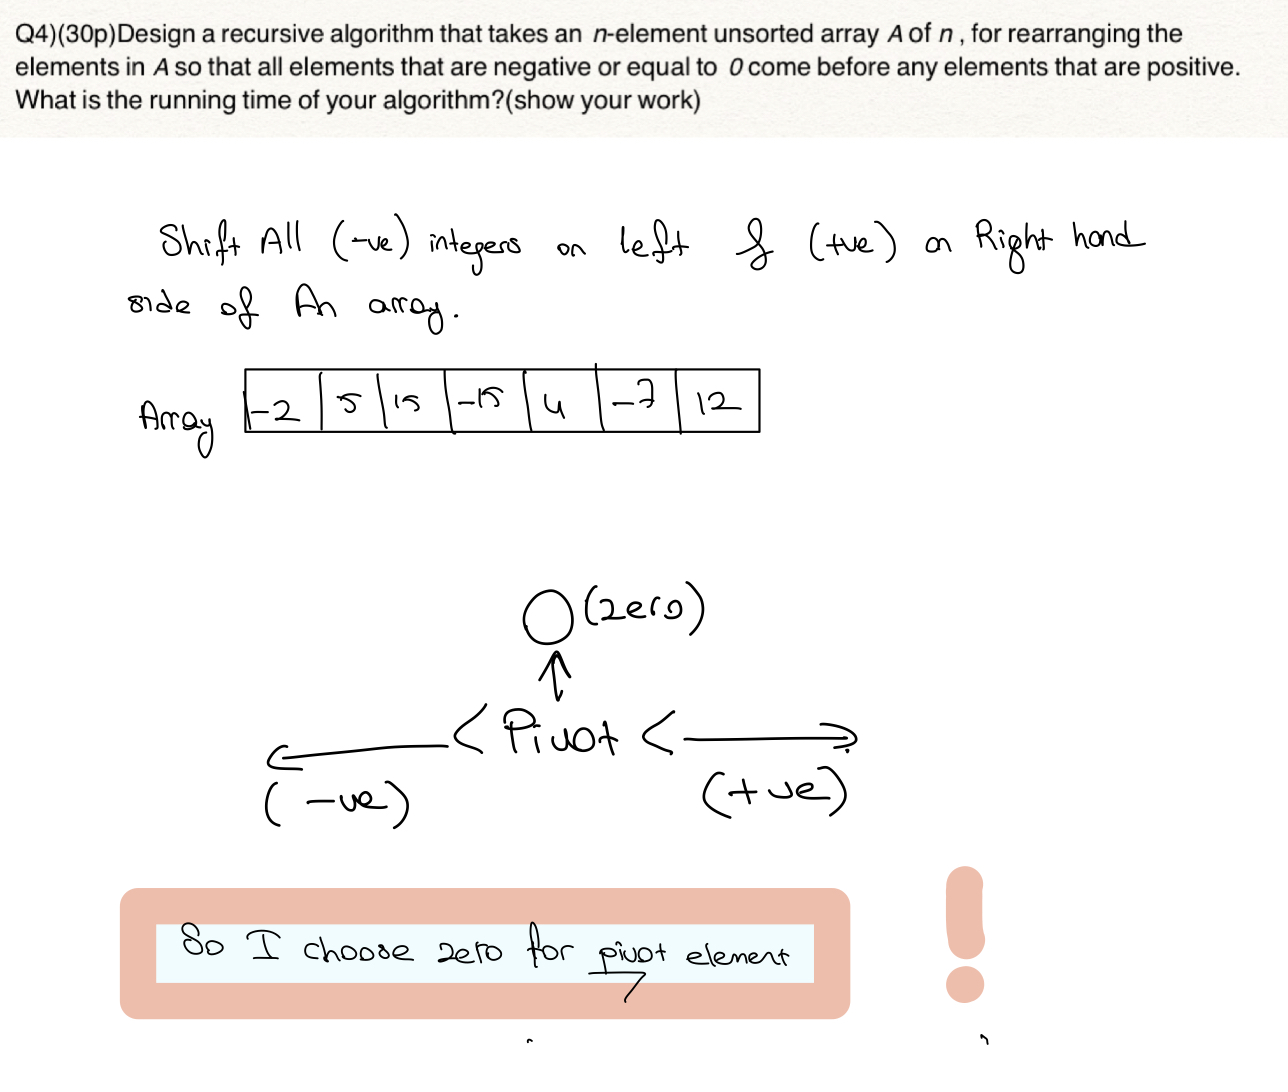 Q4)(30p)Design a recursive algorithm that takes an n-element unsorted array A of n , for rearranging the
elements in A so that all elements that are negative or equal to 0 come before any elements that are positive.
What is the running time of your algorithm?(show your work)
Shift All (-ve) integers on left & (+ve) on Right hand
side of An array.
Array -2 5 15 -15 4 -7 12
O (zero)
↑
< Pivot <
(-ve) (+ve)
So I choose zero for pivot element
!